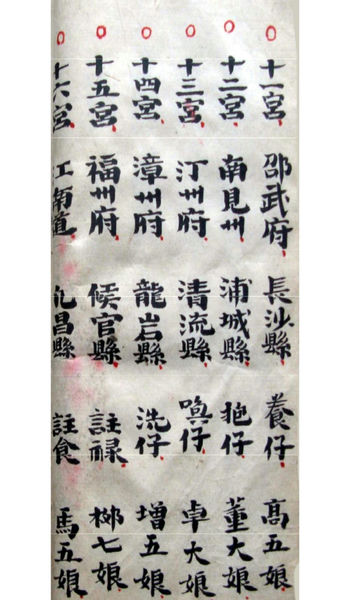 十一宮 邵武府 長沙縣 養仔 高五娘
十二宮 南見州 浦城縣 抱仔 董大娘
十三宮 汀州府 清流縣 喚仔 卓大娘
十四宮 漳州府 龍岩縣 洗仔 增五娘
十五宮 福州府 候官縣 註祿 柳七娘
十六宮 江南道 昌縣 註食 馬五娘